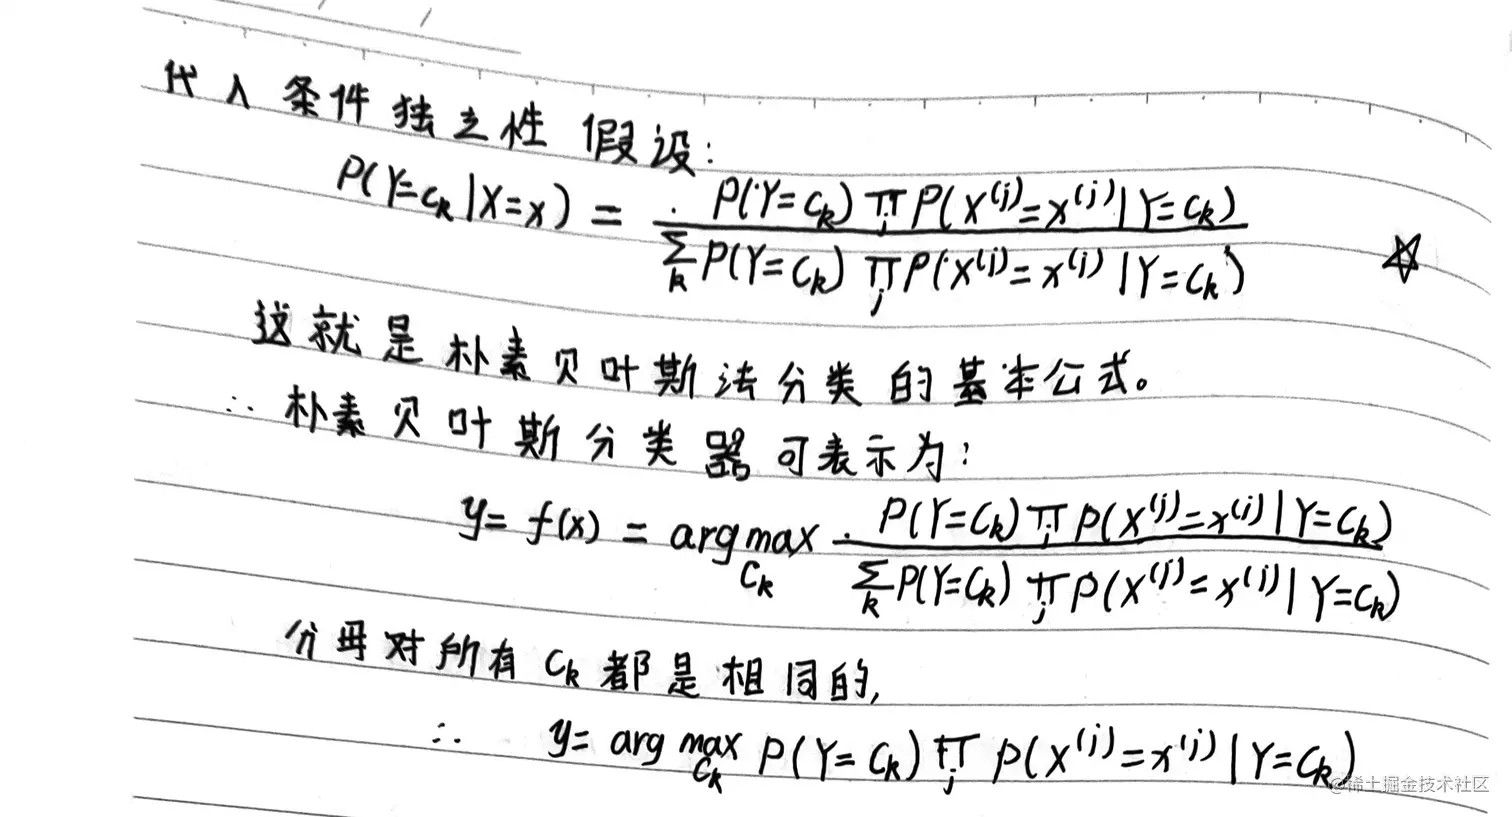 代入条件独立性假设:
P(Y=cₖ|X=x) = P(Y=cₖ) ∏ⱼ P(X⁽ʲ⁾=x⁽ʲ⁾|Y=cₖ) / ∑ₖ P(Y=cₖ) ∏ⱼ P(X⁽ʲ⁾=x⁽ʲ⁾|Y=cₖ) ☆
这就是朴素贝叶斯法分类的基本公式。
∴ 朴素贝叶斯分类器可表示为:
y= f(x) = arg max_{cₖ} P(Y=cₖ) ∏ⱼ P(X⁽ʲ⁾=x⁽ʲ⁾|Y=cₖ) / ∑ₖ P(Y=cₖ) ∏ⱼ P(X⁽ʲ⁾=x⁽ʲ⁾|Y=cₖ)
分母对所有cₖ都是相同的,
∴ y= arg max_{cₖ} P(Y=cₖ) ∏ⱼ P(X⁽ʲ⁾=x⁽ʲ⁾|Y=cₖ)
@稀土掘金技术社区